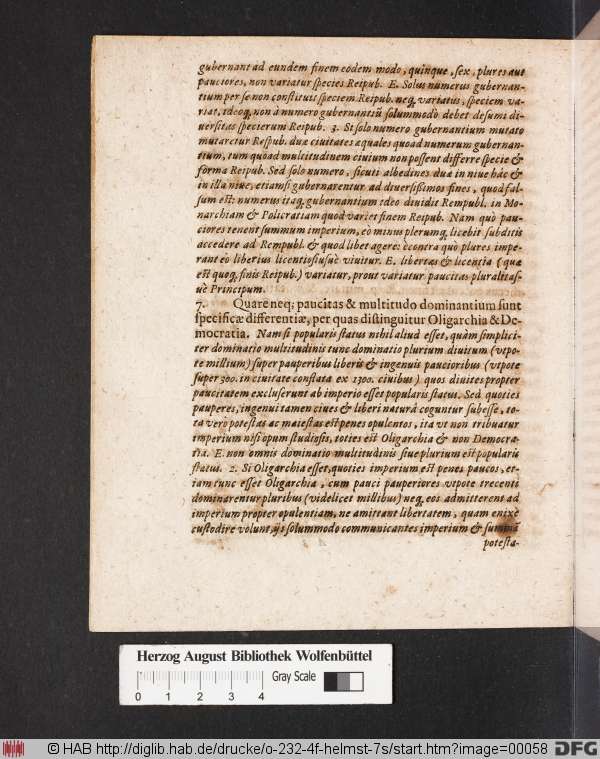 gubernant ad eundem finem eodem modo, quinque, sex, plures aut
pauciores, non variatur species Reipub. E. Solus numerus gubernan-
tium per se non constituit speciem Reipub. neq; variatus, speciem va-
riat, ideoq; non à numero gubernantiū solummodò debet desumi di-
uersitas specierum Reipub. 3. Si solo numero gubernantium mutato
mutaretur Respub. duæ ciuitates æquales quoad numerum gubernan-
tium, tum quoad multitudinem ciuium non possent differre specie &
forma Reipub. Sed solo numero, sicuti albedines duæ in niue hâc &
in illa niue, etiamsi gubernarentur ad diuersissimos fines, quod fal-
sum est: numerus itaq; gubernantium ideo diuidit Rempubl. in Mo-
narchiam & Policratiam quod variet finem Reipub. Nam quò pau-
ciores tenent summum imperium, eò minus plerumq; licebit subditis
accedere ad Rempubl. & quod libet agere: ècontra quò plures impe-
rant eò liberius licentiosiusùe viuitur. E. libertas & licentia (quæ
est quoq; finis Reipub.) variatur, prout variatur paucitas pluralitas-
uè Principum.
7. Quare neq; paucitas & multitudo dominantium sunt
specificæ differentiæ, per quas distinguitur Oligarchia & De-
mocratia. Nam si popularis status nihil aliud esset, quàm simplici-
ter dominatio multitudinis tunc dominatio plurium diuitum (vtpo-
te millium) super pauperibus liberis & ingenuis paucioribus (vtpote
super 300. in ciuitate constata ex 1300. ciuibus) quos diuites propter
paucitatem excluserunt ab imperio esset popularis status. Sed quoties
pauperes, ingenui tamen ciues & liberi naturâ coguntur subesse, to-
ta vero potestas ac maiestas est penes opulentos, ita vt non tribuatur
imperium nisi opum studiosis, toties est Oligarchia & non Democra-
tia. E. non omnis dominatio multitudinis siue plurium est popularis
status. 2. Si Oligarchia esset, quoties imperium est penes paucos, et-
iam tunc esset Oligarchia, cum pauci pauperiores vtpote trecenti
dominarentur pluribus (videlicet millibus) neq; eos admitterent ad
imperium propter opulentiam, ne amittant libertatem, quam enixè
custodire volunt, ijs solummodo communicantes imperium & summā
potesta-
Herzog August Bibliothek Wolfenbüttel
Gray Scale
0 1 2 3 4
© HAB http://diglib.hab.de/drucke/o-232-4f-helmst-7s/start.htm?image=00058 DFG